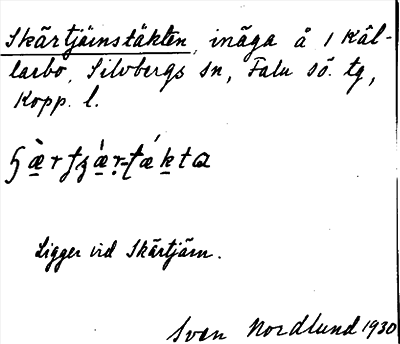 Skärtjäinstäkten, inäga å 1 Kål-
larbo, Silvbergs sn, Falu sö. tg,
Kopp. l.
Ligger vid Skärtjärn.
Sven Nordlund 1930